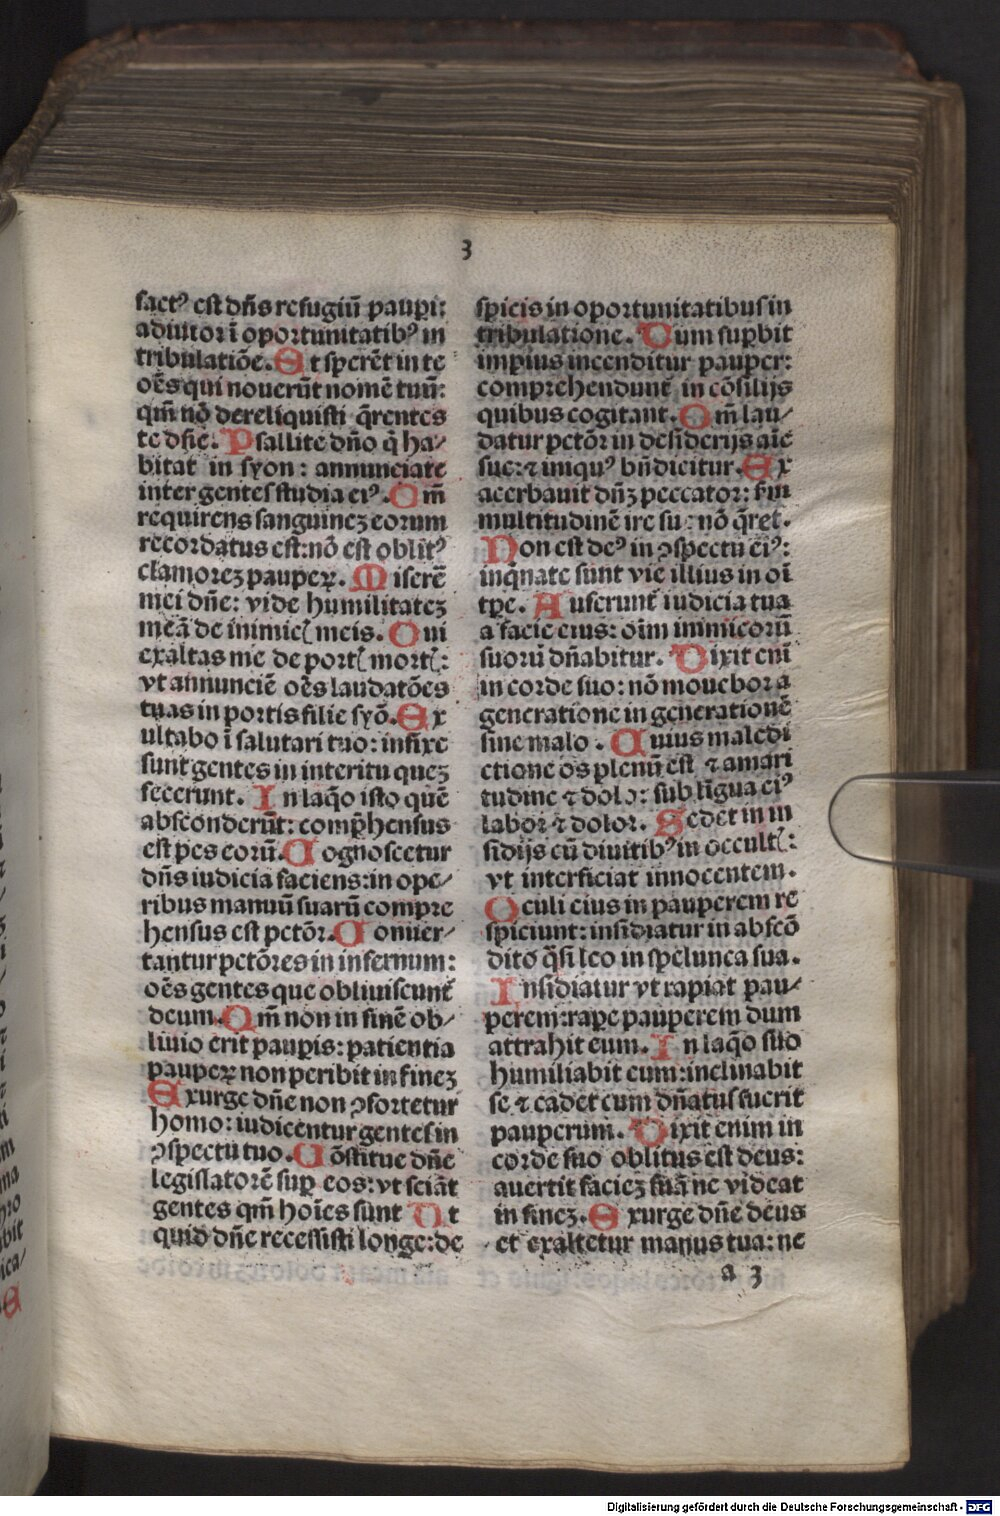 3
factꝰ est dñs refugiũ paupi:
adiutor ĩ oportunitatibꝰ in
tribulatiõe. Et sperẽt in te
oẽs qui nouerũt nomẽ tuũ:
qm̃ nõ dereliquisti q̃rentes
te dñe. Psallite dño q̃ ha⸗
bitat in syon: annunciate
inter gentes studia eiꝰ. Qm̃
requirens sanguineꝫ eorum
recordatus est: nõ est oblitꝰ
clamoreꝫ pauperꝝ. Miserẽ
mei dñe: vide humilitateꝫ
meã de inimicꝭ meis. Qui
exaltas me de portꝭ mortꝭ:
vt annunciẽ oẽs laudatões
tuas in portis filie syõ. Ex
ultabo ĩ salutari tuo: infixe
sunt gentes in interitu queꝫ
fecerunt. In laq̃o isto quẽ
absconderũt: comp̃hensus
est pes eorũ. Cognoscetur
dñs iudicia faciens: in ope⸗
ribus manuũ suarũ compre
hensus est pctõr. Conuer⸗
tantur pctõres in infernum:
oẽs gentes que obliuiscunt̃
deum. Qm̃ non in finẽ ob⸗
liuio erit paupis: patientia
pauperꝝ non peribit in fineꝫ
Exurge dñe non ꝯfortetur
homo: iudicentur gentes in
ꝯspectu tuo. Cõstitue dñe
legislatorẽ sup eos: vt sciãt
gentes qm̃ hoĩes sunt Ut
quid dñe recessisti longe: de
spicis in oportunitatibus in
tribulatione. Dum supbit
impius incenditur pauper:
comprehendunt̃ in cõsilijs
quibus cogitant. Qm̃ lau⸗
datur pctõr in desiderijs aĩe
sue: ⁊ iniquꝰ bñdicitur. Ex
acerbauit dñꝫ peccator: sm̃
multitudinẽ ire sue nõ q̃ret.
Non est deꝰ in ꝯspectu eiꝰ:
inq̃nate sunt vie illius in oĩ
tpe. Auferunt̃ iudicia tua
a facie eius: oĩm inimicorũ
suorũ dñabitur. Dixit enĩ
in corde suo: nõ mouebor a
generatione in generationẽ
sine malo. Cuius maledi
ctione os plenũ est ⁊ amari
tudine ⁊ dolo: sub lĩgua eiꝰ
labor ⁊ dolor. Sedet in in
sidijs cũ diuitibꝰ in occultꝭ:
vt interficiat innocentem.
Oculi eius in pauperem re
spiciunt: insidiatur in abscõ
dito q̃si leo in spelunca sua.
Insidiatur vt rapiat pau⸗
perem: rape pauperem dum
attrahit eum. In laq̃o suo
humiliabit eum: inclinabit
se ⁊ cadet cum dñatus fuerit
pauperum. Dixit enim in
corde suo oblitus est deus:
auertit facieꝫ suã ne videat
in fineꝫ. Exurge dñe deus
et exaltetur manus tua: ne
a 3
Digitalisierung gefördert durch die Deutsche Forschungsgemeinschaft - DFG